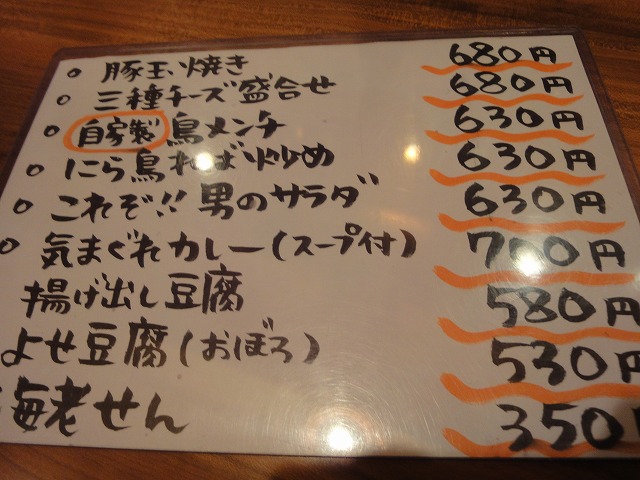 ○ 豚玉焼き 680円
○ 三種チーズ盛合せ 680円
○ 自家製 鳥メンチ 630円
○ にら鳥ればー炒め 630円
○ これぞ!!男のサラダ 630円
○ 気まぐれカレー(スープ付) 700円
揚げ出し豆腐 580円
よせ豆腐(おぼろ) 530円
海老せん 350円